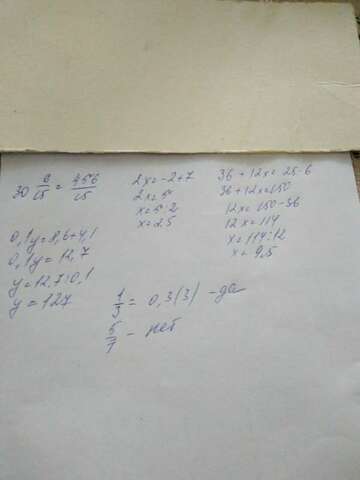 30 6/15 = 456/15
0,1y = 8,6+4,1
0,1y = 12,7
y = 12,7:0,1
y = 127
2x = -2+7
2x = 5
x = 5:2
x = 2,5
36+12x = 25·6
36+12x = 150
12x = 150-36
12x = 114
x = 114:12
x = 9,5
1/3 = 0,3(3) - да
5/7 - нет